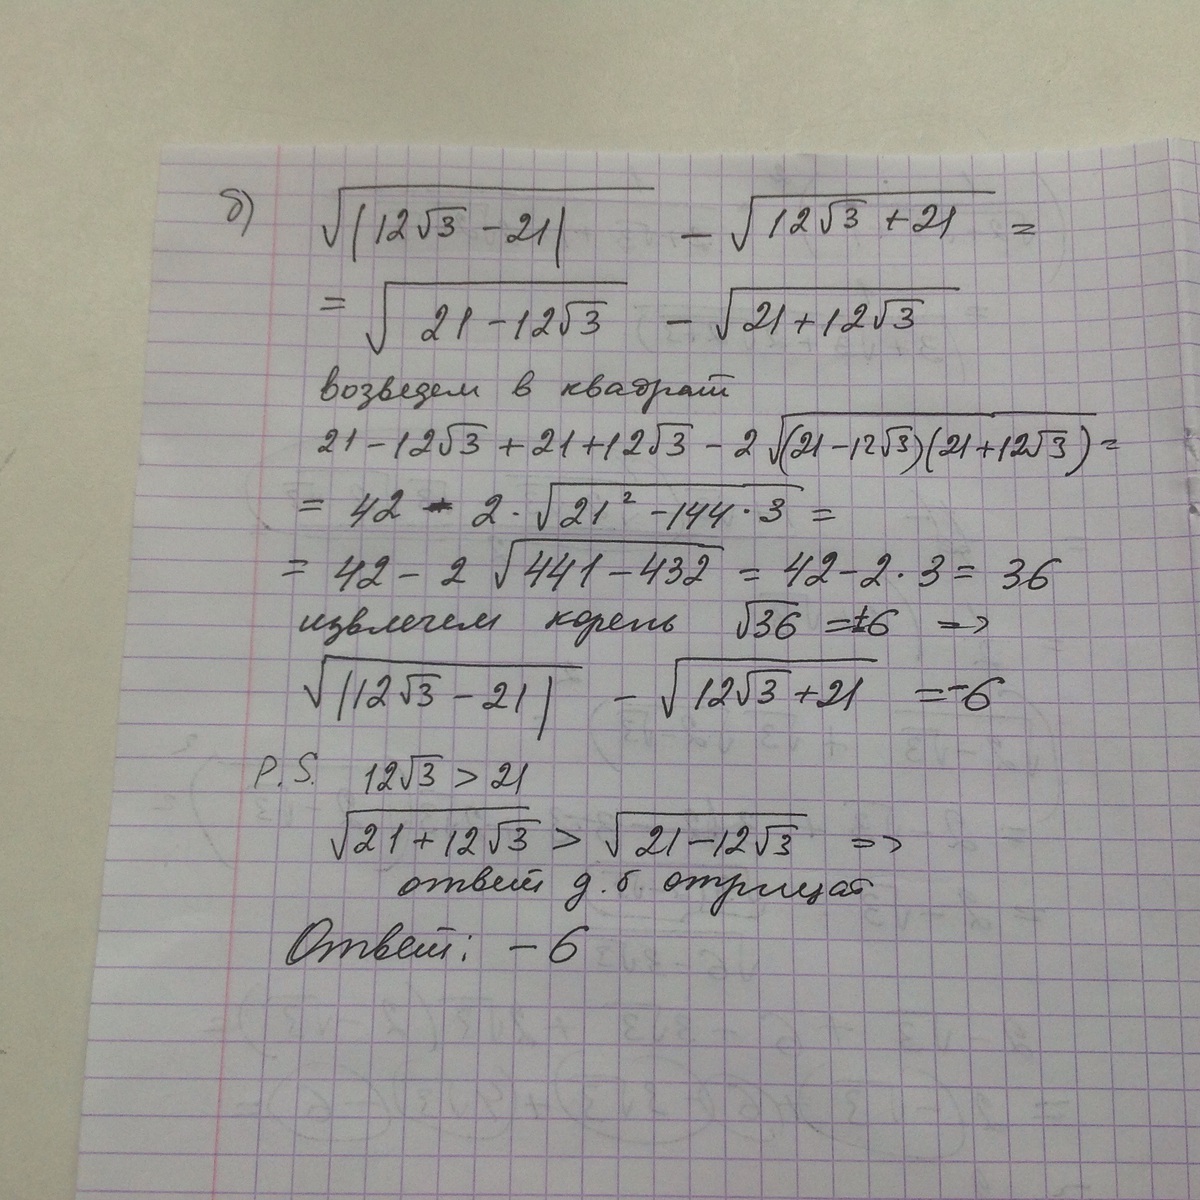 б) √|12√3 - 21| - √12√3 + 21 =
= √21 - 12√3 - √21 + 12√3
возведем в квадрат
21 - 12√3 + 21 + 12√3 - 2√(21 - 12√3)(21 + 12√3) =
= 42 - 2 · √21² - 144 · 3 =
= 42 - 2 √441 - 432 = 42 - 2 · 3 = 36
извлечем корень √36 = ±6 =>
√|12√3 - 21| - √12√3 + 21 = -6
P.S. 12√3 > 21
√21 + 12√3 > √21 - 12√3 =>
ответ д.б. отрицат
Ответ: - 6